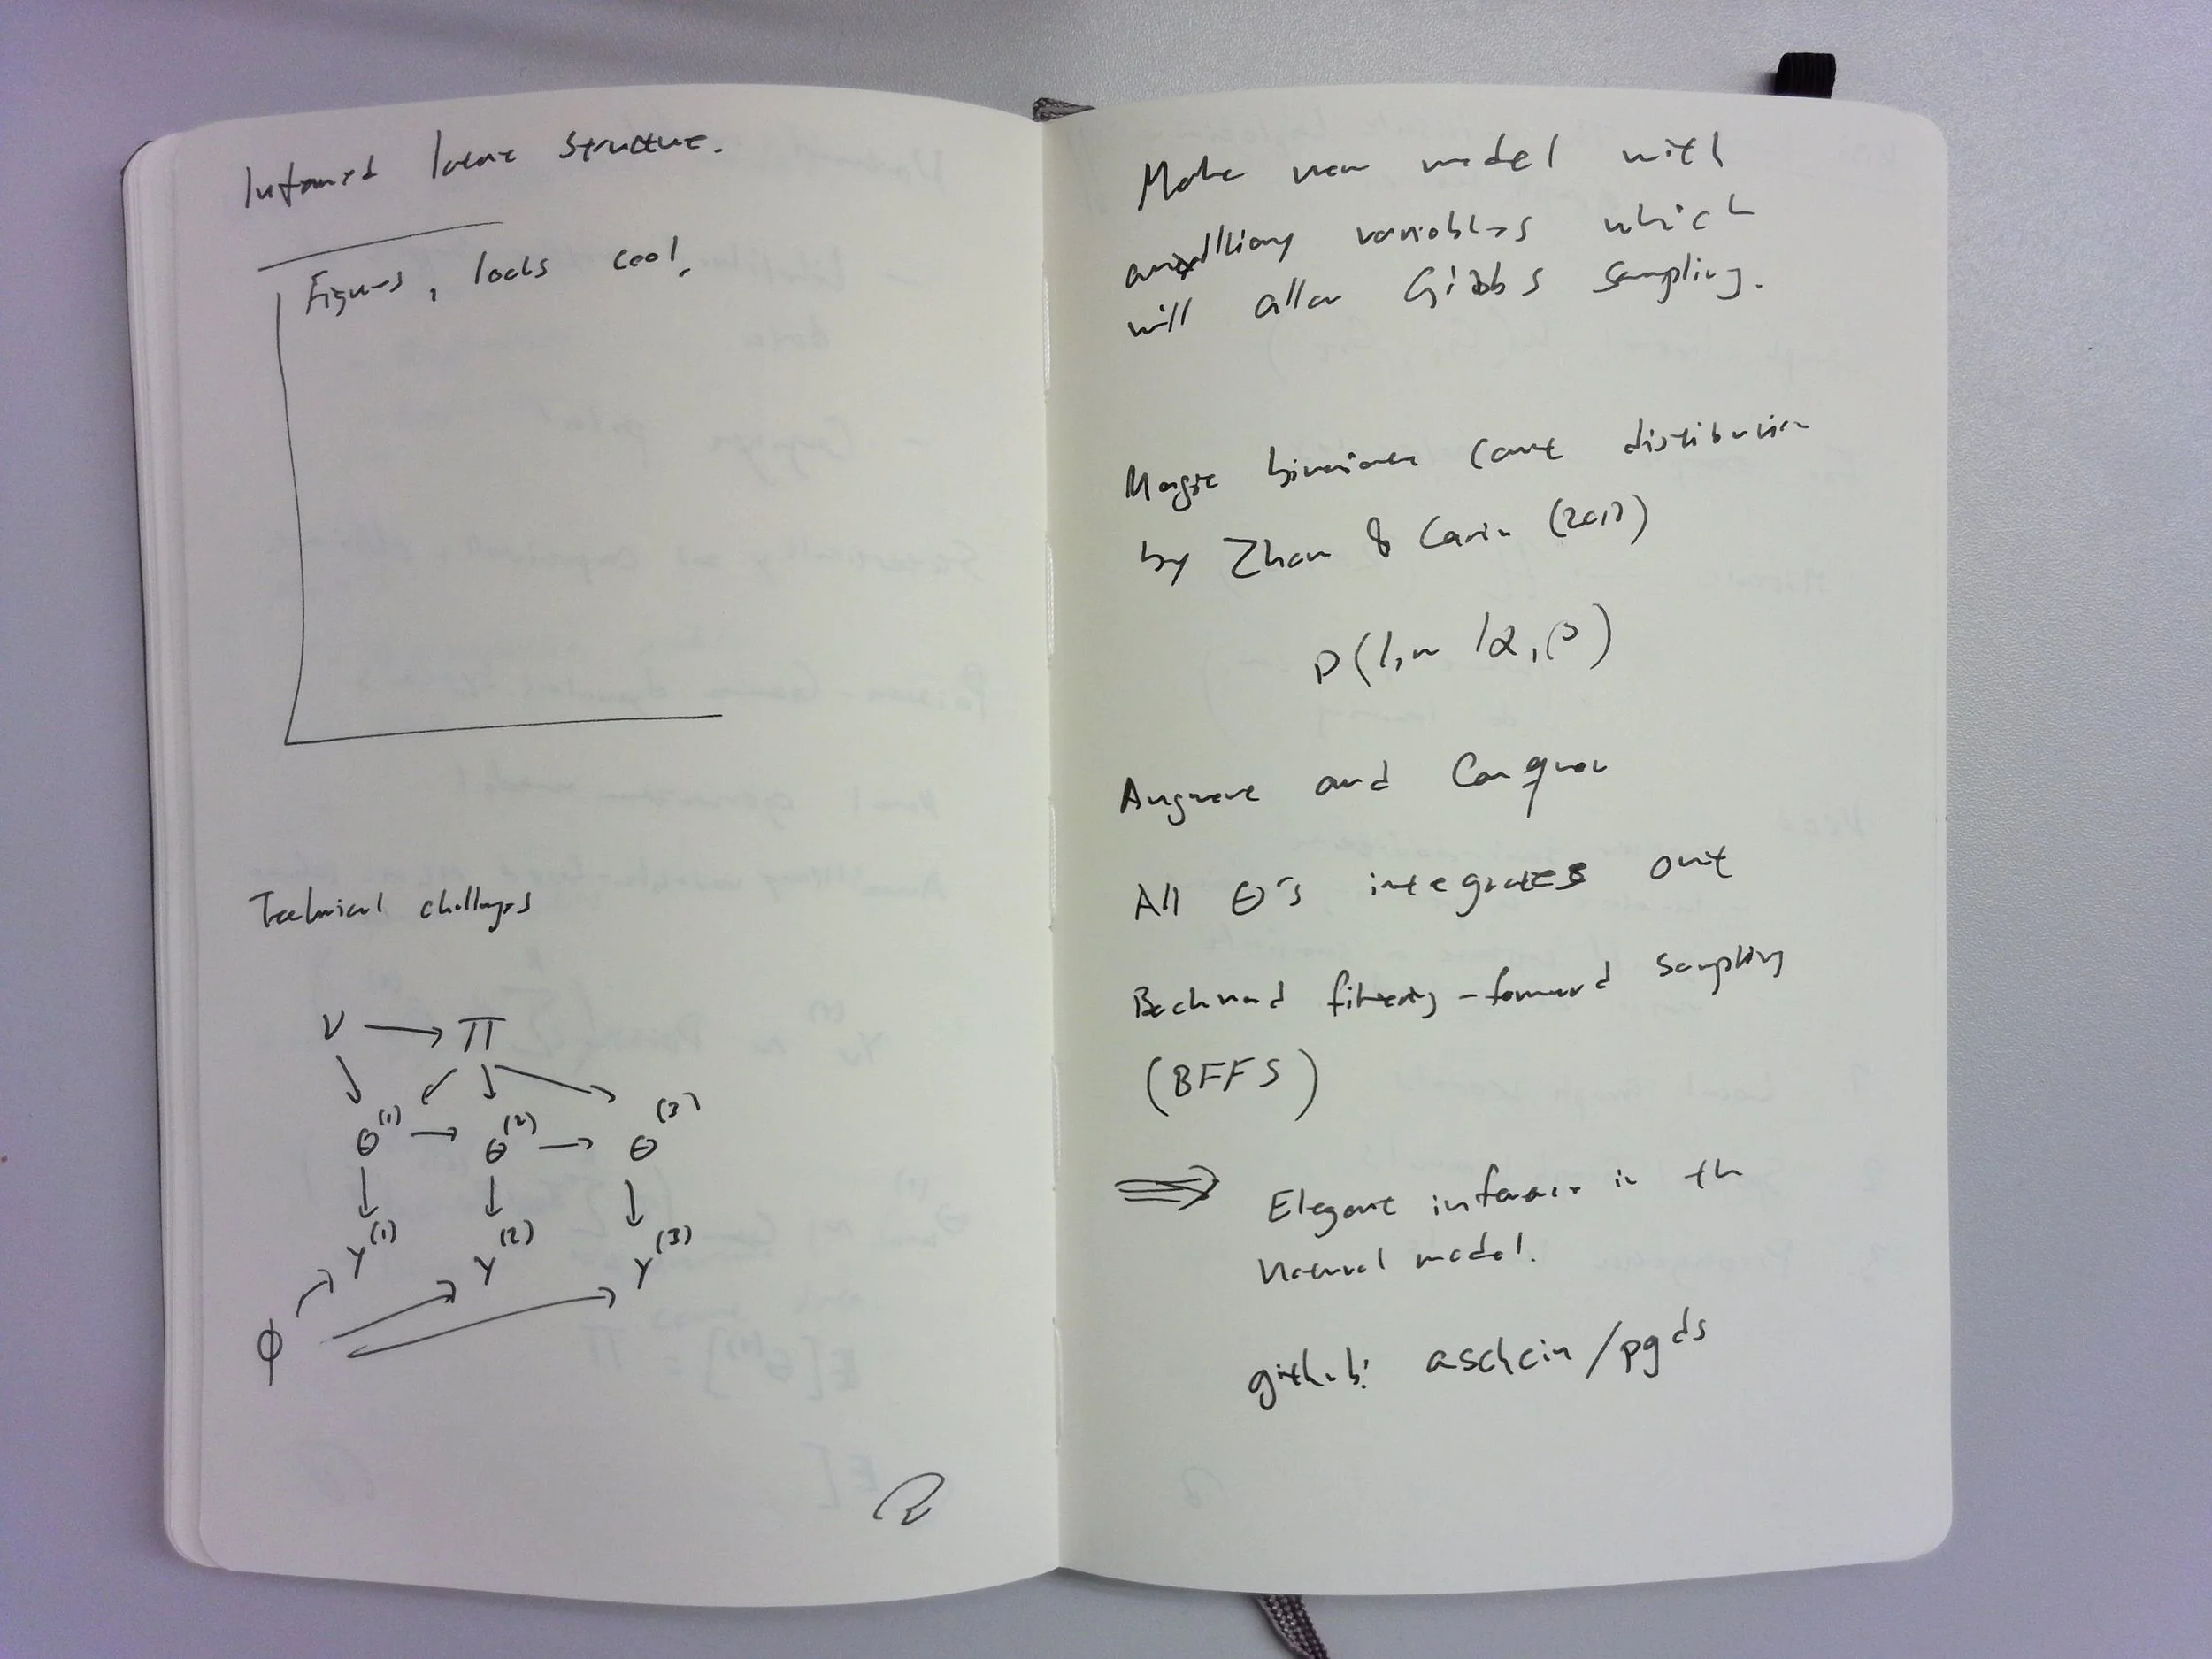 Inferred latent structure.
Figures, looks cool.
Technical challenges
ν → Π
θ(1) → θ(2) → θ(3)
Y(1) Y(2) Y(3)
ϕ
Make new model with
auxilliary variables which
will allow Gibbs sampling.
Magic bivariate count distribution
by Zhou & Carin (2012)
P(l,m | α, β)
Augment and Conquer
All θ's integrates out
Backward filtering - forward sampling
(BFFS)
⇒ Elegant inference in the
natural model.
github: aschein/pgds